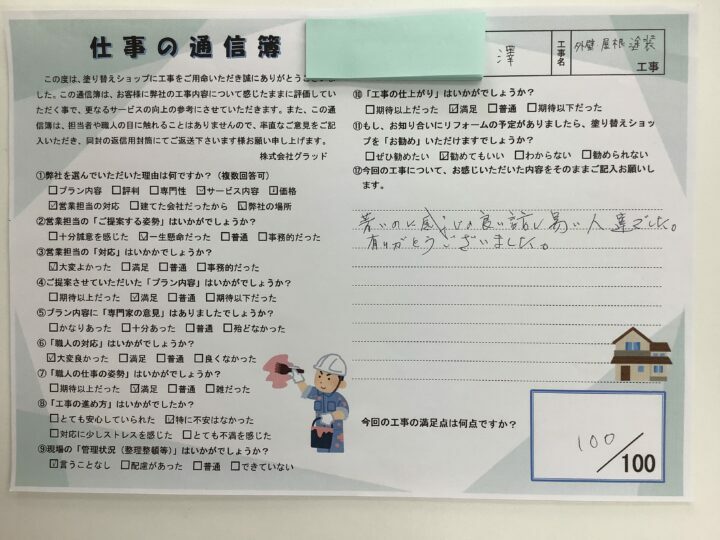 仕事の通信簿
澤
工事名
外壁・屋根塗装
工事
この度は、塗り替えショップに工事をご用命いただき誠にありがとうござい
した。この通信簿は、お客様に弊社の工事内容について感じたままに評価してい
ただく事で、更なるサービスの向上の参考にさせていただきます。また、この通
信簿は、担当者や職人の目に触れることはありませんので、率直なご意見をご記
入いただき、同封の返信用封筒にてご返送下さいます様お願い申し上げます。
株式会社グラッド
①弊社を選んでいただいた理由は何ですか?（複数回答可）
□プラン内容 □評判 □専門性 ☑サービス内容 ☑価格
☑営業担当の対応 □建てた会社だったから ☑弊社の場所
②営業担当の「ご提案する姿勢」はいかがでしょうか?
□十分誠意を感じた ☑一生懸命だった □普通 □事務的だった
③営業担当の「対応」はいかがでしょうか?
☑大変よかった □満足 □普通 □事務的だった
④ご提案させていただいた「プラン内容」はいかがでしょうか?
□期待以上だった ☑満足 □普通 □期待以下だった
⑤プラン内容に「専門家の意見」はありましたでしょうか?
□かなりあった □十分あった □普通 □殆どなかった
⑥「職人の対応」はいかがでしょうか?
☑大変良かった □満足 □普通 □良くなかった
⑦「職人の仕事の姿勢」はいかがでしょうか?
□期待以上だった ☑満足 □普通 □雑だった
⑧「工事の進め方」はいかがでしたか?
□とても安心していられた ☑特に不安はなかった
□対応に少しストレスを感じた □とても不満を感じた
⑨現場の「管理状況（整理整頓等）」はいかがでしょうか?
☑言うことなし □配慮があった □普通 □できていない
⑩「工事の仕上がり」はいかがでしょうか?
□期待以上だった ☑満足 □普通 □期待以下だった
⑪もし、お知り合いにリフォームの予定がありましたら、塗り替えショッ
プを「お勧め」いただけますでしょうか?
□ぜひ勧めたい ☑勧めてもいい □わからない □勧められない
⑫今回の工事について、お感じいただいた内容をそのままご記入お願いし
ます。
若いのに感じの良い話し易い人達でした。
有りがとうございました。
今回の工事の満足点は何点ですか?
100/100